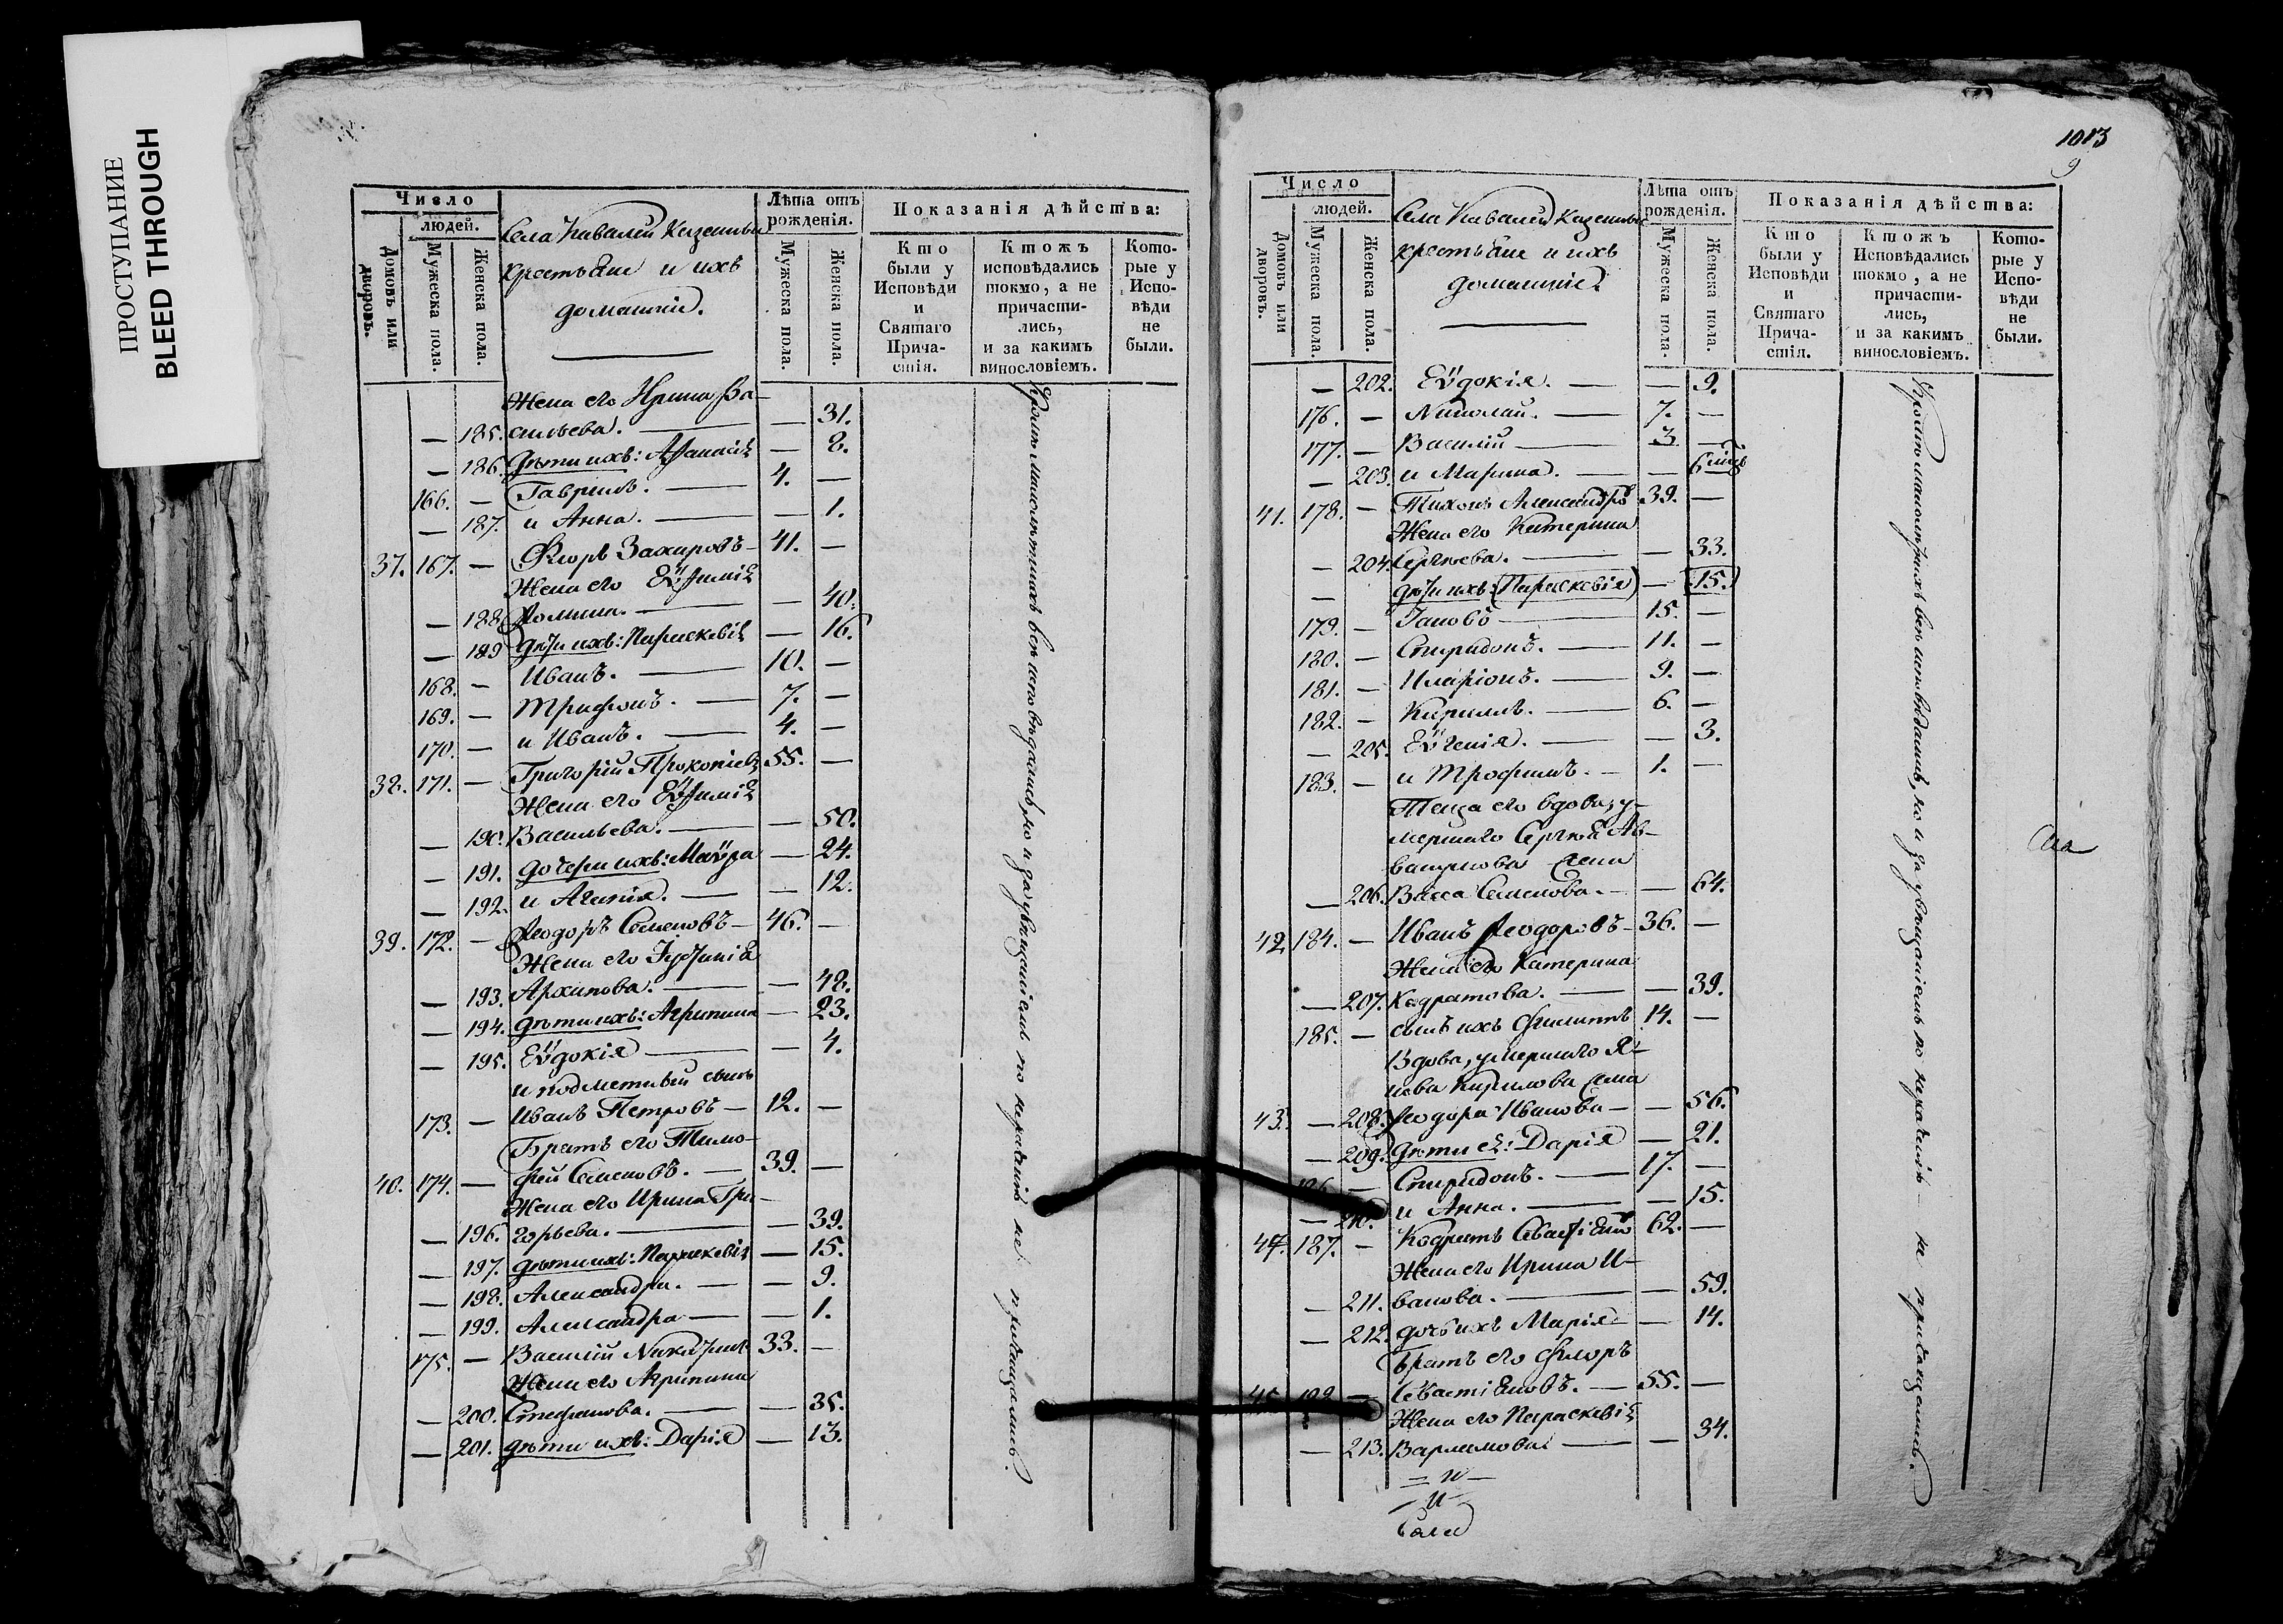 ПРОСТУПАНИЕ
BLEED THROUGH
Число
людей.
Домовъ или дворовъ.
Мужеска пола.
Женска пола.
Села Кавалей Казенные
крестьяне и ихъ
домашніе.
Лѣта отъ рожденія.
Мужеска пола.
Женска пола.
Показанія дѣйства:
Кто были у Исповѣди и Святаго Причастія.
Ктожъ исповѣдались токмо, а не причастились, и за какимъ винословіемъ.
Которые у Исповѣди не были.
Жена его Ирина Ва-
— 185. сильева. — — 31.
— 186. Дѣти ихъ: Афанасія — 8.
166. — Гавриилъ. — 4. —
— 187. и Анна. — — 1.
37. 167. — Флоръ Захаровъ — 41. —
Жена его Еѵфимія
— 188. Фомина. — — 40.
— 189 Дѣти ихъ: Параскевія — 16.
168. — Иванъ. — 10. —
169. — Трифонъ. — 7. —
170. — и Иванъ. — 4. —
38. 171. — Григорій Прокопіевъ 55. —
Жена его Еѵфимія
— 190. Васильева. — — 50.
— 191. дочери ихъ: Маѵра — 24.
— 192. и Агапія. — — 12.
39. 172. — Ѳеодоръ Семеновъ — 46. —
Жена его Іустинія
— 193. Архипова. — — 48.
— 194. дѣти ихъ: Агрипина — 23.
— 195. Еѵдокія — — 4.
сынъ
173. — Иванъ Петровъ — 12. —
Братъ его Тимо-
40. 174. — фей Семеновъ. — 39. —
Жена его Ирина Гри-
— 196. горьева. — — 39.
— 197. дѣти ихъ: Параскевія — 15.
— 198. Александра. — — 9.
— 199. Александра — — 1.
175. — Василій 33. —
Жена его Агрипина
— 200. Стефанова. — — 35.
— 201. дѣти ихъ: Дарія — 13.
Кромѣ малолѣтнихъ все исповѣдались, но и за увѣщаніемъ по нераденію не приобщались.
1013
9
Число
людей.
Домовъ или дворовъ.
Мужеска пола.
Женска пола.
Села Кавалей Казенные
крестьяне и ихъ
домашніе
Лѣта отъ рожденія.
Мужеска пола.
Женска пола.
Показанія дѣйства:
Кто были у Исповѣди и Святаго Причастія.
Ктожъ Исповѣдались токмо, а не причастились, и за какимъ винословіемъ.
Которые у Исповѣди не были.
— 202. Еѵдокія. — — 9.
176. — Николай. — 7. —
177. — Василій — 3 —
— 203. и Марина. — — 6
41. 178. — Тихонъ Александровъ 39. —
Жена его Катерина
— 204. Сергѣева. — — 33.
— дѣти ихъ: (Параскевія) — 15.
179. — Іаковъ — 15. —
180. — Спиридонъ. — 11. —
181. — Иларіонъ. — 9. —
182. — Кириллъ. — 6. —
— 205. Еѵгенія. — — 3.
183. — и Трофимъ. — 1. —
Теща его вдова, у-
мершаго Сергѣя Ав-
вакумова жена
— 206. Васса Семенова. — — 64.
42 184. — Иванъ Ѳеодоровъ — 36. —
Жена его Катерина
— 207. Кодратова. — — 39.
185. — сынъ ихъ Филиппъ 14. —
Вдова, умершаго Я-
кова Кирилова жена
43. — 208. Ѳеодора Иванова — — 56.
— 209. Дѣти ея: Дарія — 21.
186 — Спиридонъ. — 17. —
— 210. и Анна. — — 15.
44. 187. — Кодратъ 62. —
Жена его Ирина И-
— 211. ванова. — — 59.
— 212. дочь ихъ Марія — 14.
Братъ его Флоръ
45. 188 — Севастіановъ. — 55. —
Жена его Параскевія
— 213. Варламова — — 34.
Кромѣ малолѣтнихъ все исповѣдались, но и за увѣщаніемъ по нераденію — не приобщались.